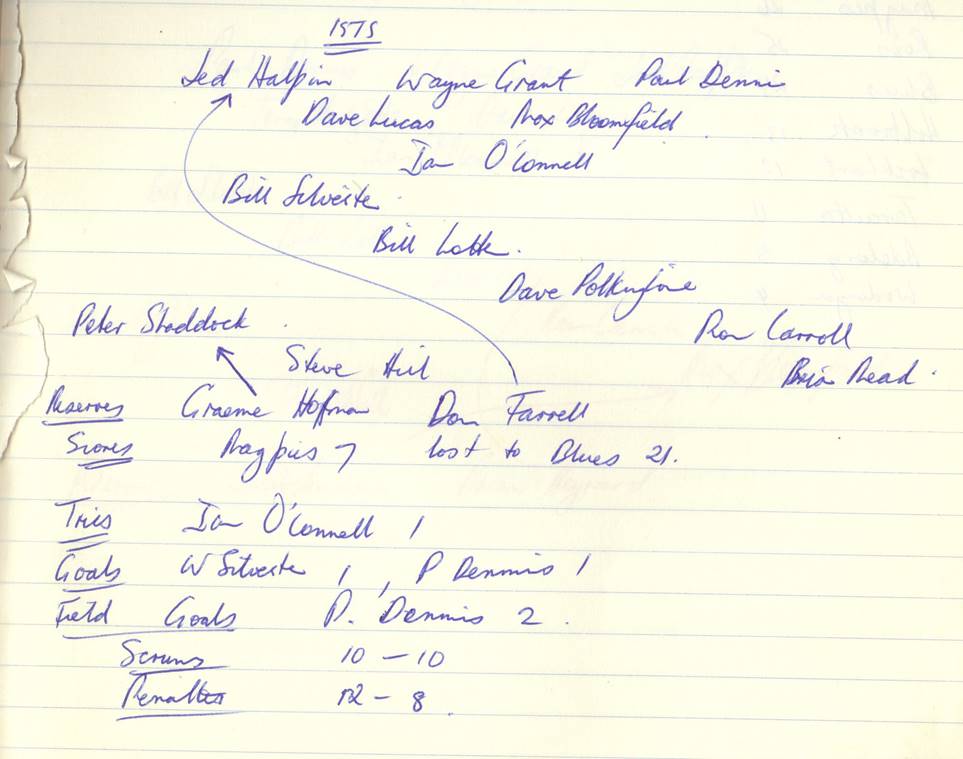 1975
Jed Halpin Wayne Grant Paul Dennis
Dave Lucas Max Bloomfield.
Ian O'Connell
Bill Silvester
Bill Lotte.
Dave Polkinghorne
Ron Carroll
Peter Shaddock.
Steve Hill
Brian Read.
Reserves Graeme Hoffman Don Farrell
Scores Magpies 7 lost to Blues 21.
Tries Ian O'Connell 1
Goals W Silvester 1, P Dennis 1
Field Goals P. Dennis 2.
Scrums 10 - 10
Penalties 12 - 8.